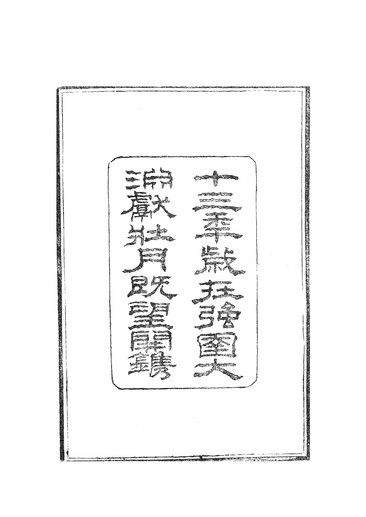 十三年歲在強圉大
淵獻壯月既望開鐫